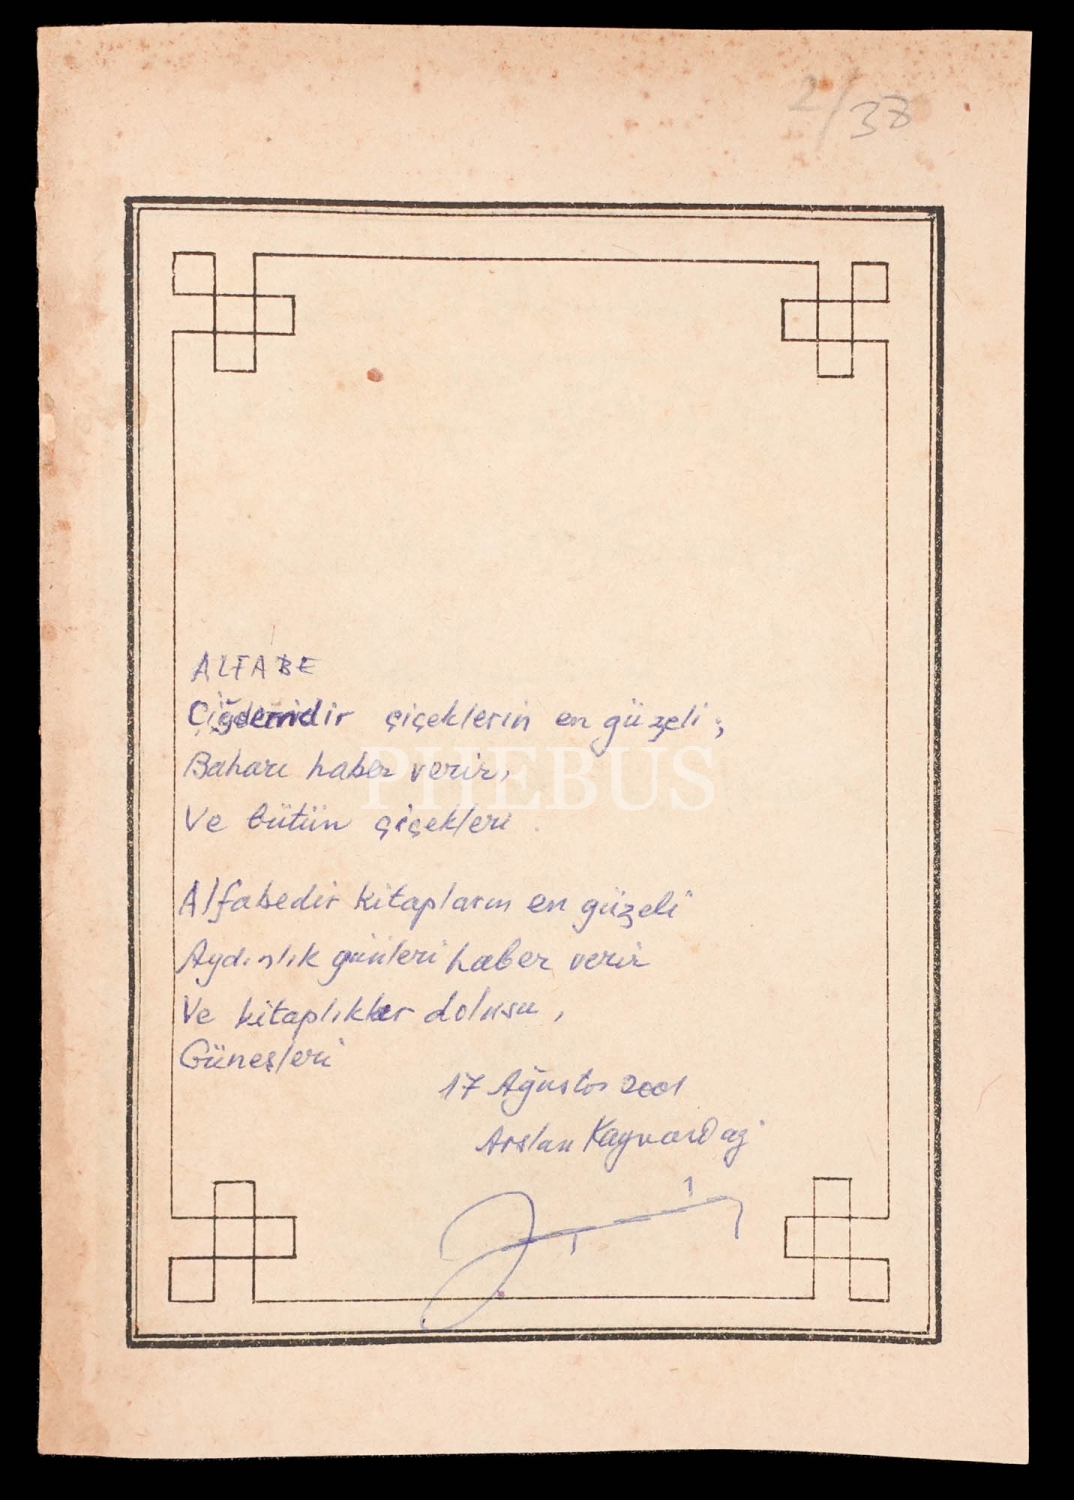 2/38
ALFABE
Çiğdemdir çiçeklerin en güzeli;
Baharı haber verir,
Ve bütün çiçekleri.
PHEBUS
Alfabedir kitapların en güzeli
Aydınlık günleri haber verir
Ve kitaplıklar dolusu,
Güneşleri
17 Ağustos 2001
Arslan Kaynardağ